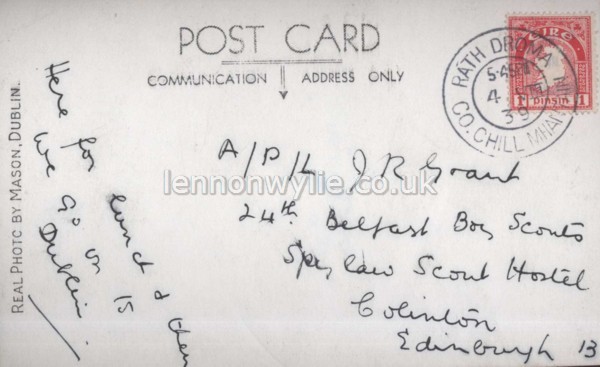 POST CARD
COMMUNICATION ADDRESS ONLY
REAL PHOTO BY MASON, DUBLIN.
Here for
lunch & then
we go on to
Dublin
RATH DROMA
5-45PM
4
39
CO. CHILL MHAN
EIRE
1 PINGIN 1
A/P/L J R Grant
24th Belfast Boy Scouts
Spylaw Scout Hostel
Colinton
Edinburgh 13
lennonwylie.co.uk